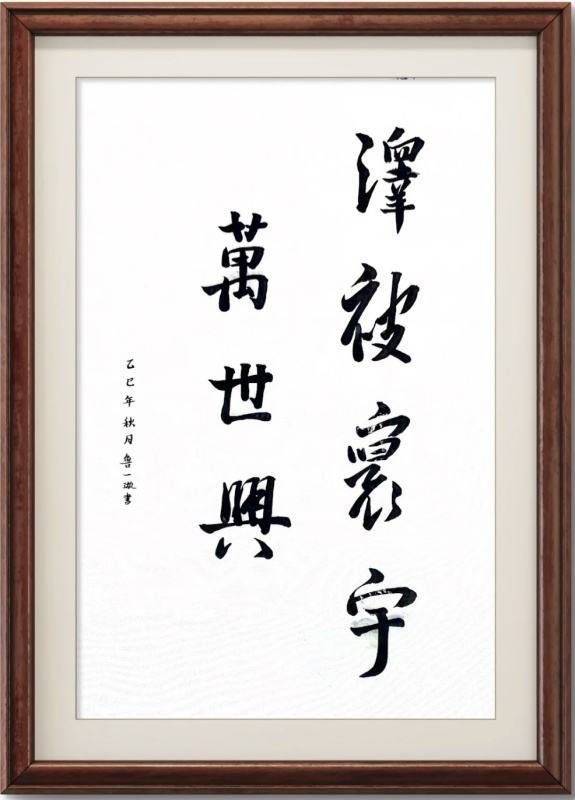 澤被寰宇
萬世興
乙巳年秋月魯一潋書